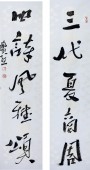 三代夏商周
四詩風雅頌